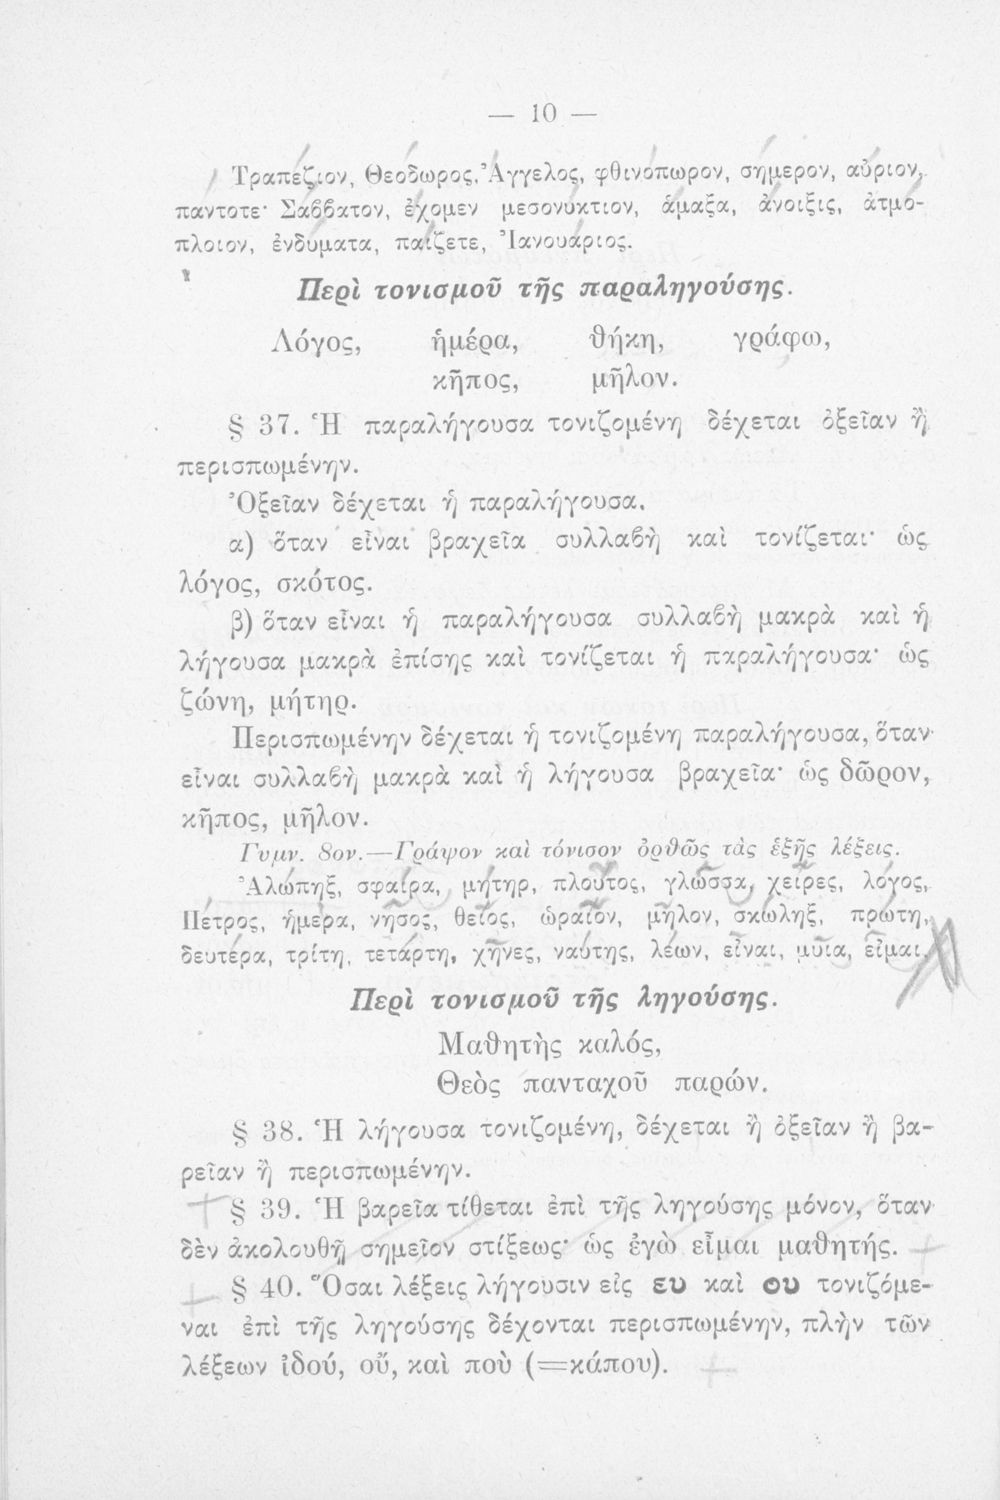 — 10 —
Τραπεζιον, Θεοδωρος, Ἀγγελος, φθινοπωρον, σημερον, αὐριον,
παντοτε· Σαββατον, ἐχομεν μεσονυκτιον, ἁμαξα, ἀνοιξις, ἀτμο-
πλοιον, ἐνδυματα, παιζετε, Ἰανουαριος.
Περὶ τονισμοῦ τῆς παραληγούσης.
Λόγος, ἡμέρα, θήκη, γράφω,
κῆπος, μῆλον.
§ 37. Ἡ παραλήγουσα τονιζομένη δέχεται ὀξεῖαν ἢ
περισπωμένην.
Ὀξεῖαν δέχεται ἡ παραλήγουσα.
α) ὅταν εἶναι βραχεῖα συλλαβὴ καὶ τονίζεται· ὡς
λόγος, σκότος.
β) ὅταν εἶναι ἡ παραλήγουσα συλλαβὴ μακρὰ καὶ ἡ
λήγουσα μακρὰ ἐπίσης καὶ τονίζεται ἡ παραλήγουσα· ὡς
ζώνη, μήτηρ.
Περισπωμένην δέχεται ἡ τονιζομένη παραλήγουσα, ὅταν
εἶναι συλλαβὴ μακρὰ καὶ ἡ λήγουσα βραχεῖα· ὡς δῶρον,
κῆπος, μῆλον.
Γυμν. 8ον.—Γράψον καὶ τόνισον ὀρθῶς τὰς ἑξῆς λέξεις.
Ἀλωπηξ, σφαιρα, μητηρ, πλουτος, γλωσσα, χειρες, λογος,
Πετρος, ἡμερα, νησος, θειος, ὡραιον, μηλον, σκωληξ, πρωτη,
δευτερα, τριτη, τεταρτη, χηνες, ναυτης, λεων, εἰναι, μυια, εἰμαι.
Περὶ τονισμοῦ τῆς ληγούσης.
Μαθητὴς καλός,
Θεὸς πανταχοῦ παρών.
§ 38. Ἡ λήγουσα τονιζομένη, δέχεται ἢ ὀξεῖαν ἢ βα-
ρεῖαν ἢ περισπωμένην.
§ 39. Ἡ βαρεῖα τίθεται ἐπὶ τῆς ληγούσης μόνον, ὅταν
δὲν ἀκολουθῇ σημεῖον στίξεως· ὡς ἐγὼ εἶμαι μαθητής.
§ 40. Ὅσαι λέξεις λήγουσιν εἰς ευ καὶ ου τονιζόμε-
ναι ἐπὶ τῆς ληγούσης δέχονται περισπωμένην, πλὴν τῶν
λέξεων ἰδού, οὔ, καὶ ποὺ (=κάπου).